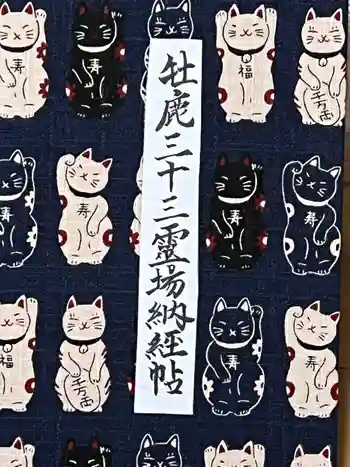 牡鹿三十三霊場納経帖
寿
寿
福
千万両
寿
寿
寿
福
千万両
寿
寿